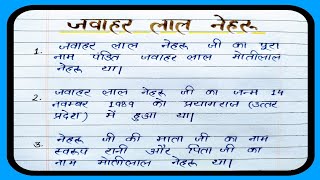 जवाहर लाल नेहरू
1. जवाहर लाल नेहरू जी का पुरा
नाम पंडित जवाहर लाल मोतीलाल
नेहरू था।
2. जवाहर लाल नेहरू जी का जन्म 14
नवम्बर 1989 को प्रयागराज (उत्तर
प्रदेश) में हुआ था।
3. नेहरू जी की माता जी का नाम
स्वरूप रानी और पिता जी का
नाम मोतीलाल नेहरू था।